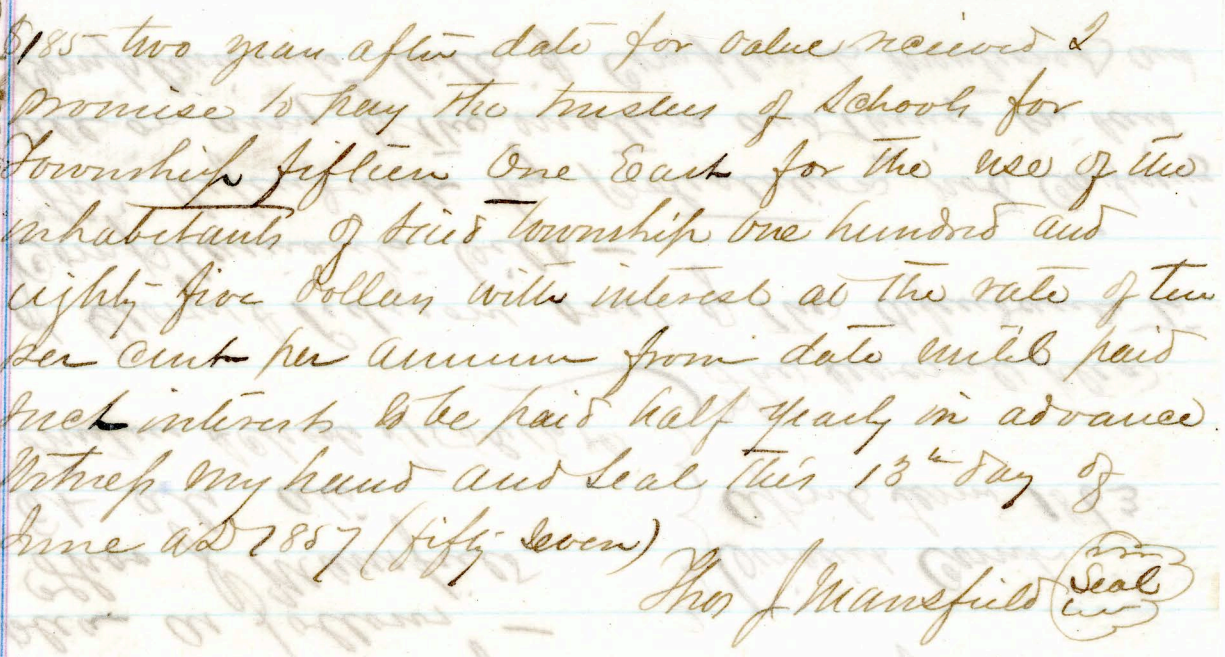 $185 two years after date for value recieved I
promise to pay the trustees of Schools for
Township fifteen One East for the use of the
inhabitants of said township one hundred and
eighty five dollars with interest at the rate of ten
per cent per annum from date until paid
such interests to be paid half yearly in advance.
Witness my hand and Seal this 13th day of
June AD 1857 (fifty seven)
Thos J Mansfield Seal